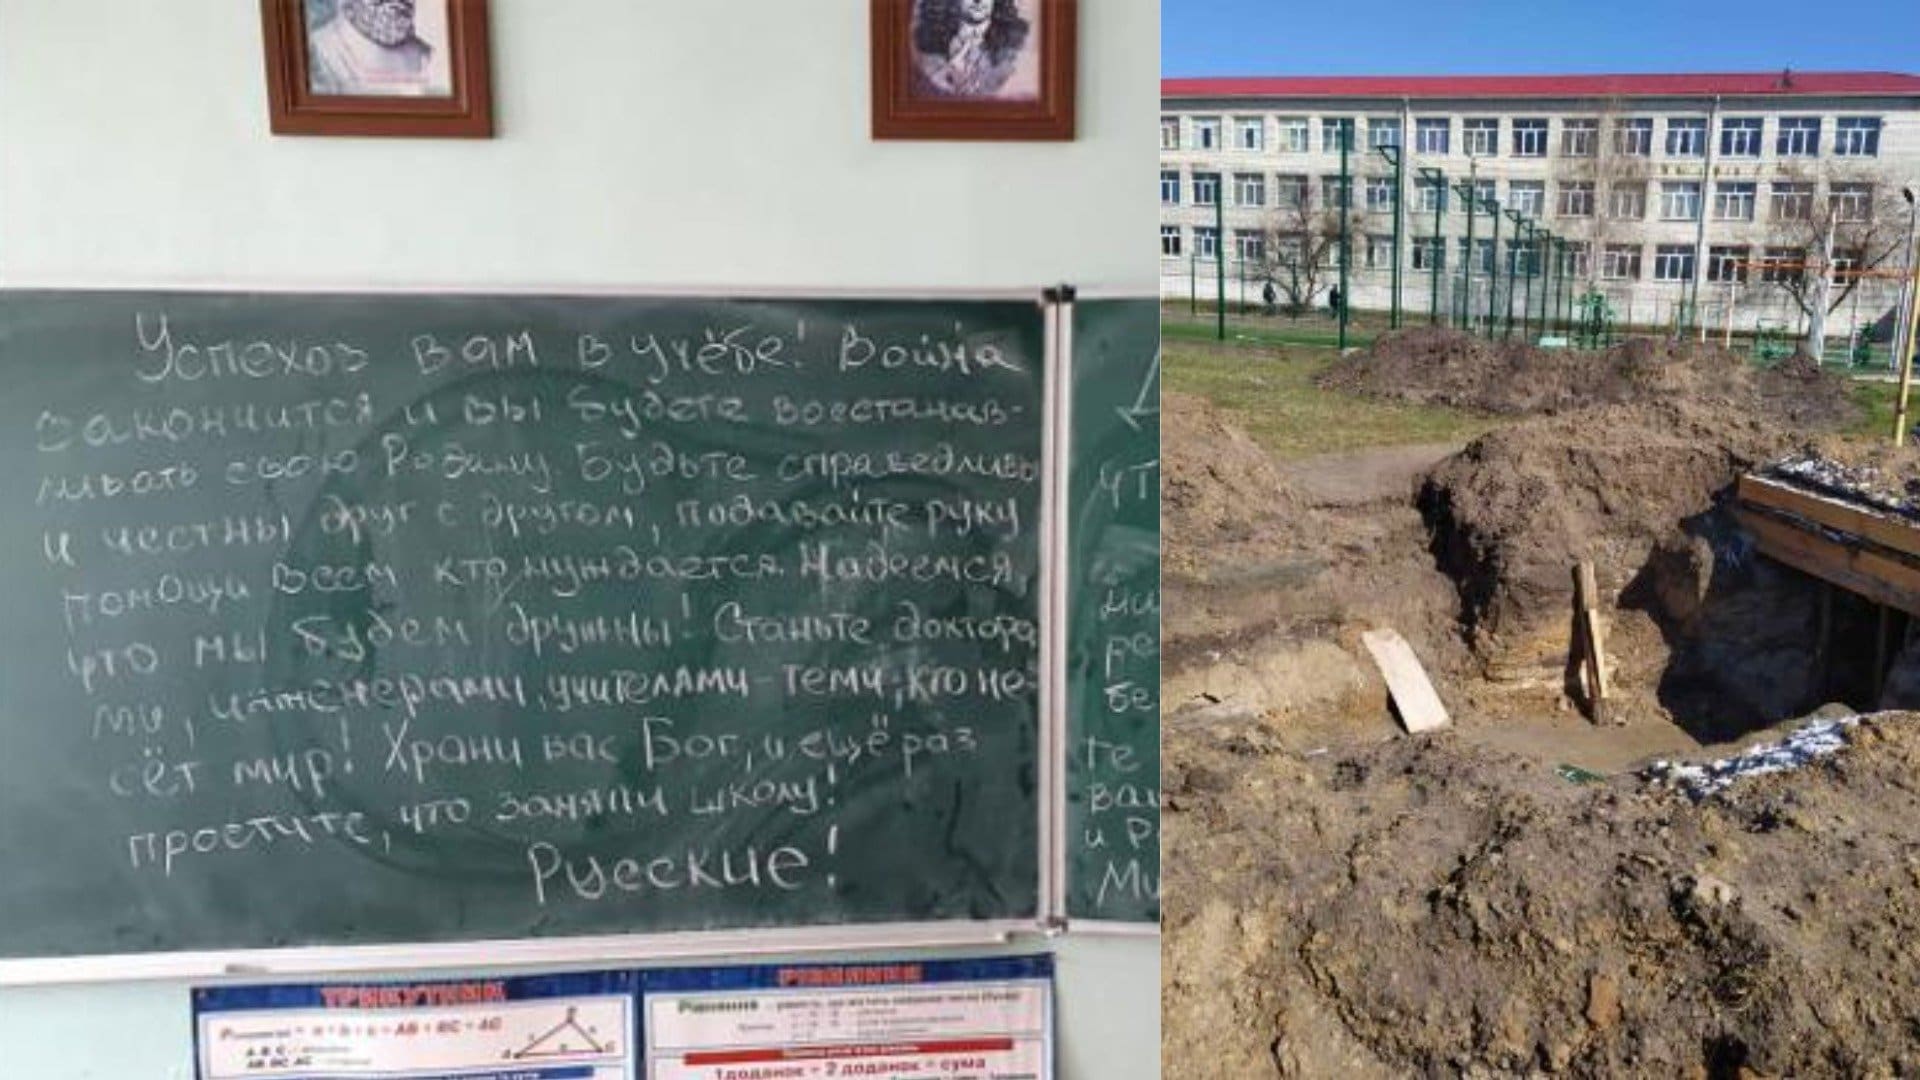 Успехов вам в учёбе! Война
закончится и вы будете восстанав-
ливать свою Родину. Будьте справедливы
и честны друг с другом, подавайте руку
помощи всем кто нуждается. Надеемся,
что мы будем дружны! Станьте доктора
ми, инженерами, учителями - теми, кто не-
сёт мир! Храни вас Бог, и ещё раз
простите, что заняли школу!
Русские!
чт
ре
бе
те
ваш
и Р
Ми
ТРИКУТНИК
AB + BC + AC
РІВНЯННЯ
Рівняння
1 доданок + 2 доданок = сума